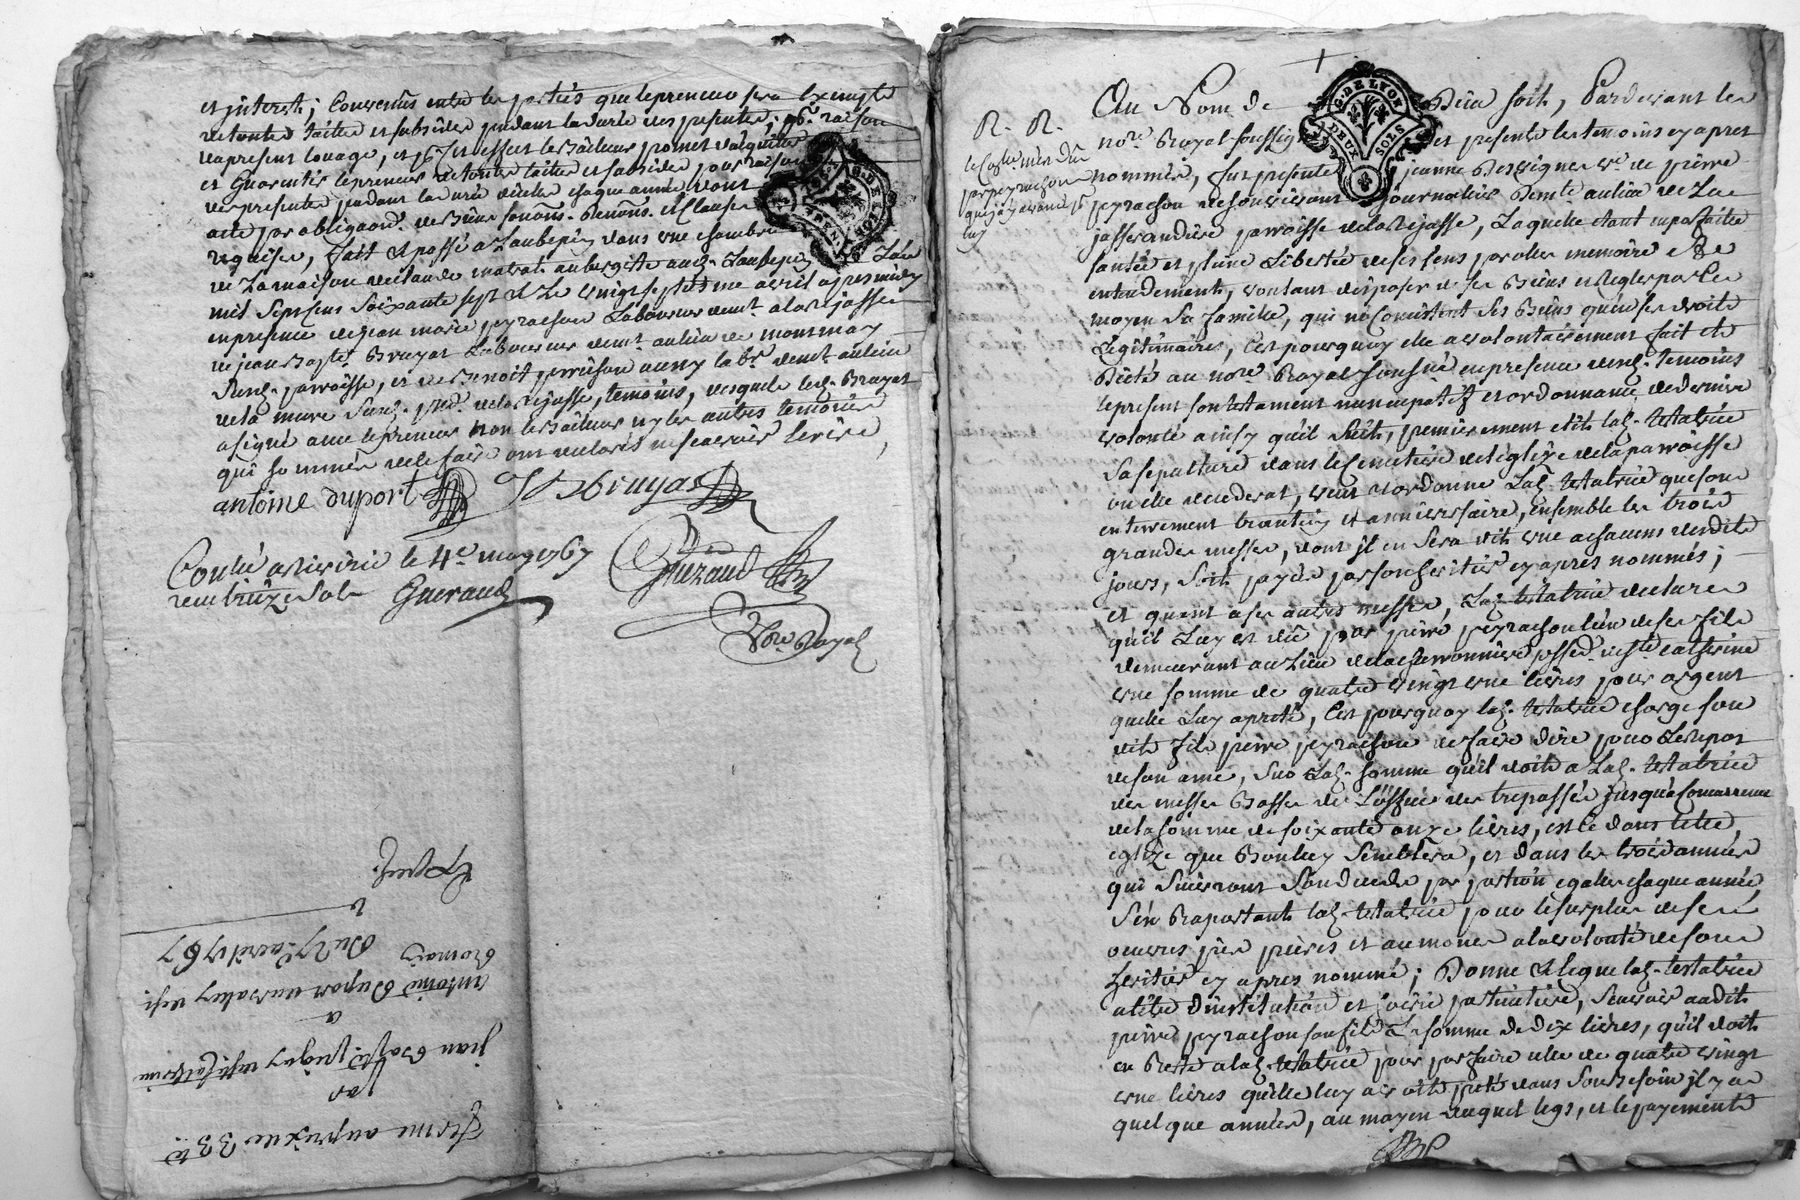 et jnterets; Convenus entre les parties que le preneur sera Exempte
de toutes tailles et subsides pendant la durée des presentes; raison
du present louage, et les Bailleurs promet d'acquitter
et Guarentir le preneur de toutes tailles et subsides pour raison
des presentes pendant la durée d'icelles chaque année, dont
acte par obligaons. de Biens soumons. Renons. et Clauses
requises, fait et passé a Laubepin dans une chambre
de La maison de claude aubergiste aud. Laubepin L'an
mil Sept Cens Soixante Sept et Le vingt sept avril apres midy
en presence de jean marie peyrachon Laboureur demt. a la Rejasse
de jean Bapte. Bruyas Laboureur demt. au lieu de montmay
Susd. parroisse, et de Benoit aussy labr. demt. au lieu
de la mure Susd. de la Rejasse, temoins, desquels led. Bruyas
a signé avec le preneur non les Bailleurs ny les autres temoins
qui sommés de le faire ont declarés ne scavoir Ecrire,
antoine duport J B bruyas
Gueraud
Conlé le 4e. may 1767
recu treize sols Gueraud
Nore. Royal
Exped.
Du 27e. avril 1767
Romain
antoine Duport
a
jean Bapte. ste. Catherine
par
ferme au prix de 33 lt
DEUX SOLS
G. DE LYON
DEUX SOLS
R. R.
Au Nom de Dieu soit, Pardevant les
nore. Royal soussigné et presents les temoins cy apres
nommés, fut presente jeanne Bessigne ve. de pierre
peyrachon de son vivant journallier Demt. au lieu de La
jasserandiere parroisse de la Rejasse, Laquelle etant en parfaitte
santée et pleine Liberté de ses sens parolle memoire et
entendement, voulant disposer de ses Biens et Regler par ce
moyen Sa famille, qui ne Consistent Ses Biens qu'en ses droits
Legitimaires, C'est pourquoy elle a volontairement fait et
Dicté au nore. Royal soussigné en presence desd. temoins
le present son testament nuncupatif et ordonnance de derniere
volonté ainsy qu'il suit, premierement elit lad. testatrice
Sa sepulture dans le Cimetiere de l'eglise de la parroisse
ou elle decedera, veut et ordonne Lad. testatrice que son
enterrement trentein et anniversaire, ensemble les trois
grandes messes, dont jl en sera dit une a chacuns desdits
jours, soit payée par son heritier cy apres nommés;
et quant a ses autres messes, Lad. testatrice declare
qu'il Luy est dû par pierre peyrachon l'un de ses fils
demeurant au Lieu de la charronniere psse. de ste. catherine
une somme de quatre vingt une livres pour argent
quelle Luy a preté, C'est pourquoy lad. testatrice charge son
dit fils pierre peyrachon de faire dire pour le repos
de son ame, Sur Lad. somme qu'il doit a Lad. testatrice
des messes Basses de L'office des trepassés jusqu'a Concurrence
de la somme de soixante onze livres, et ce dans telle
eglize que Bon luy Semblera, et dans les trois années
qui Suivront Son deceds par portion egalle chaque année,
S'en Raportant lad. testatrice pour le surplus de ses
oeuvres pies prieres et aumones a la volonté de son
heritier cy apres nommé; Donne et legue lad. testatrice
a titre d'institution et hoirie particuliere, Scavoir audit
pierre peyrachon son fils La somme de Dix livres, qu'il doit
en Reste a lad. testatrice pour parfaire celle de quatre vingt
une livres quelle luy avoit preté dans Son Besoin jl y a
quelque années, au moyen duquel legs, et le payement